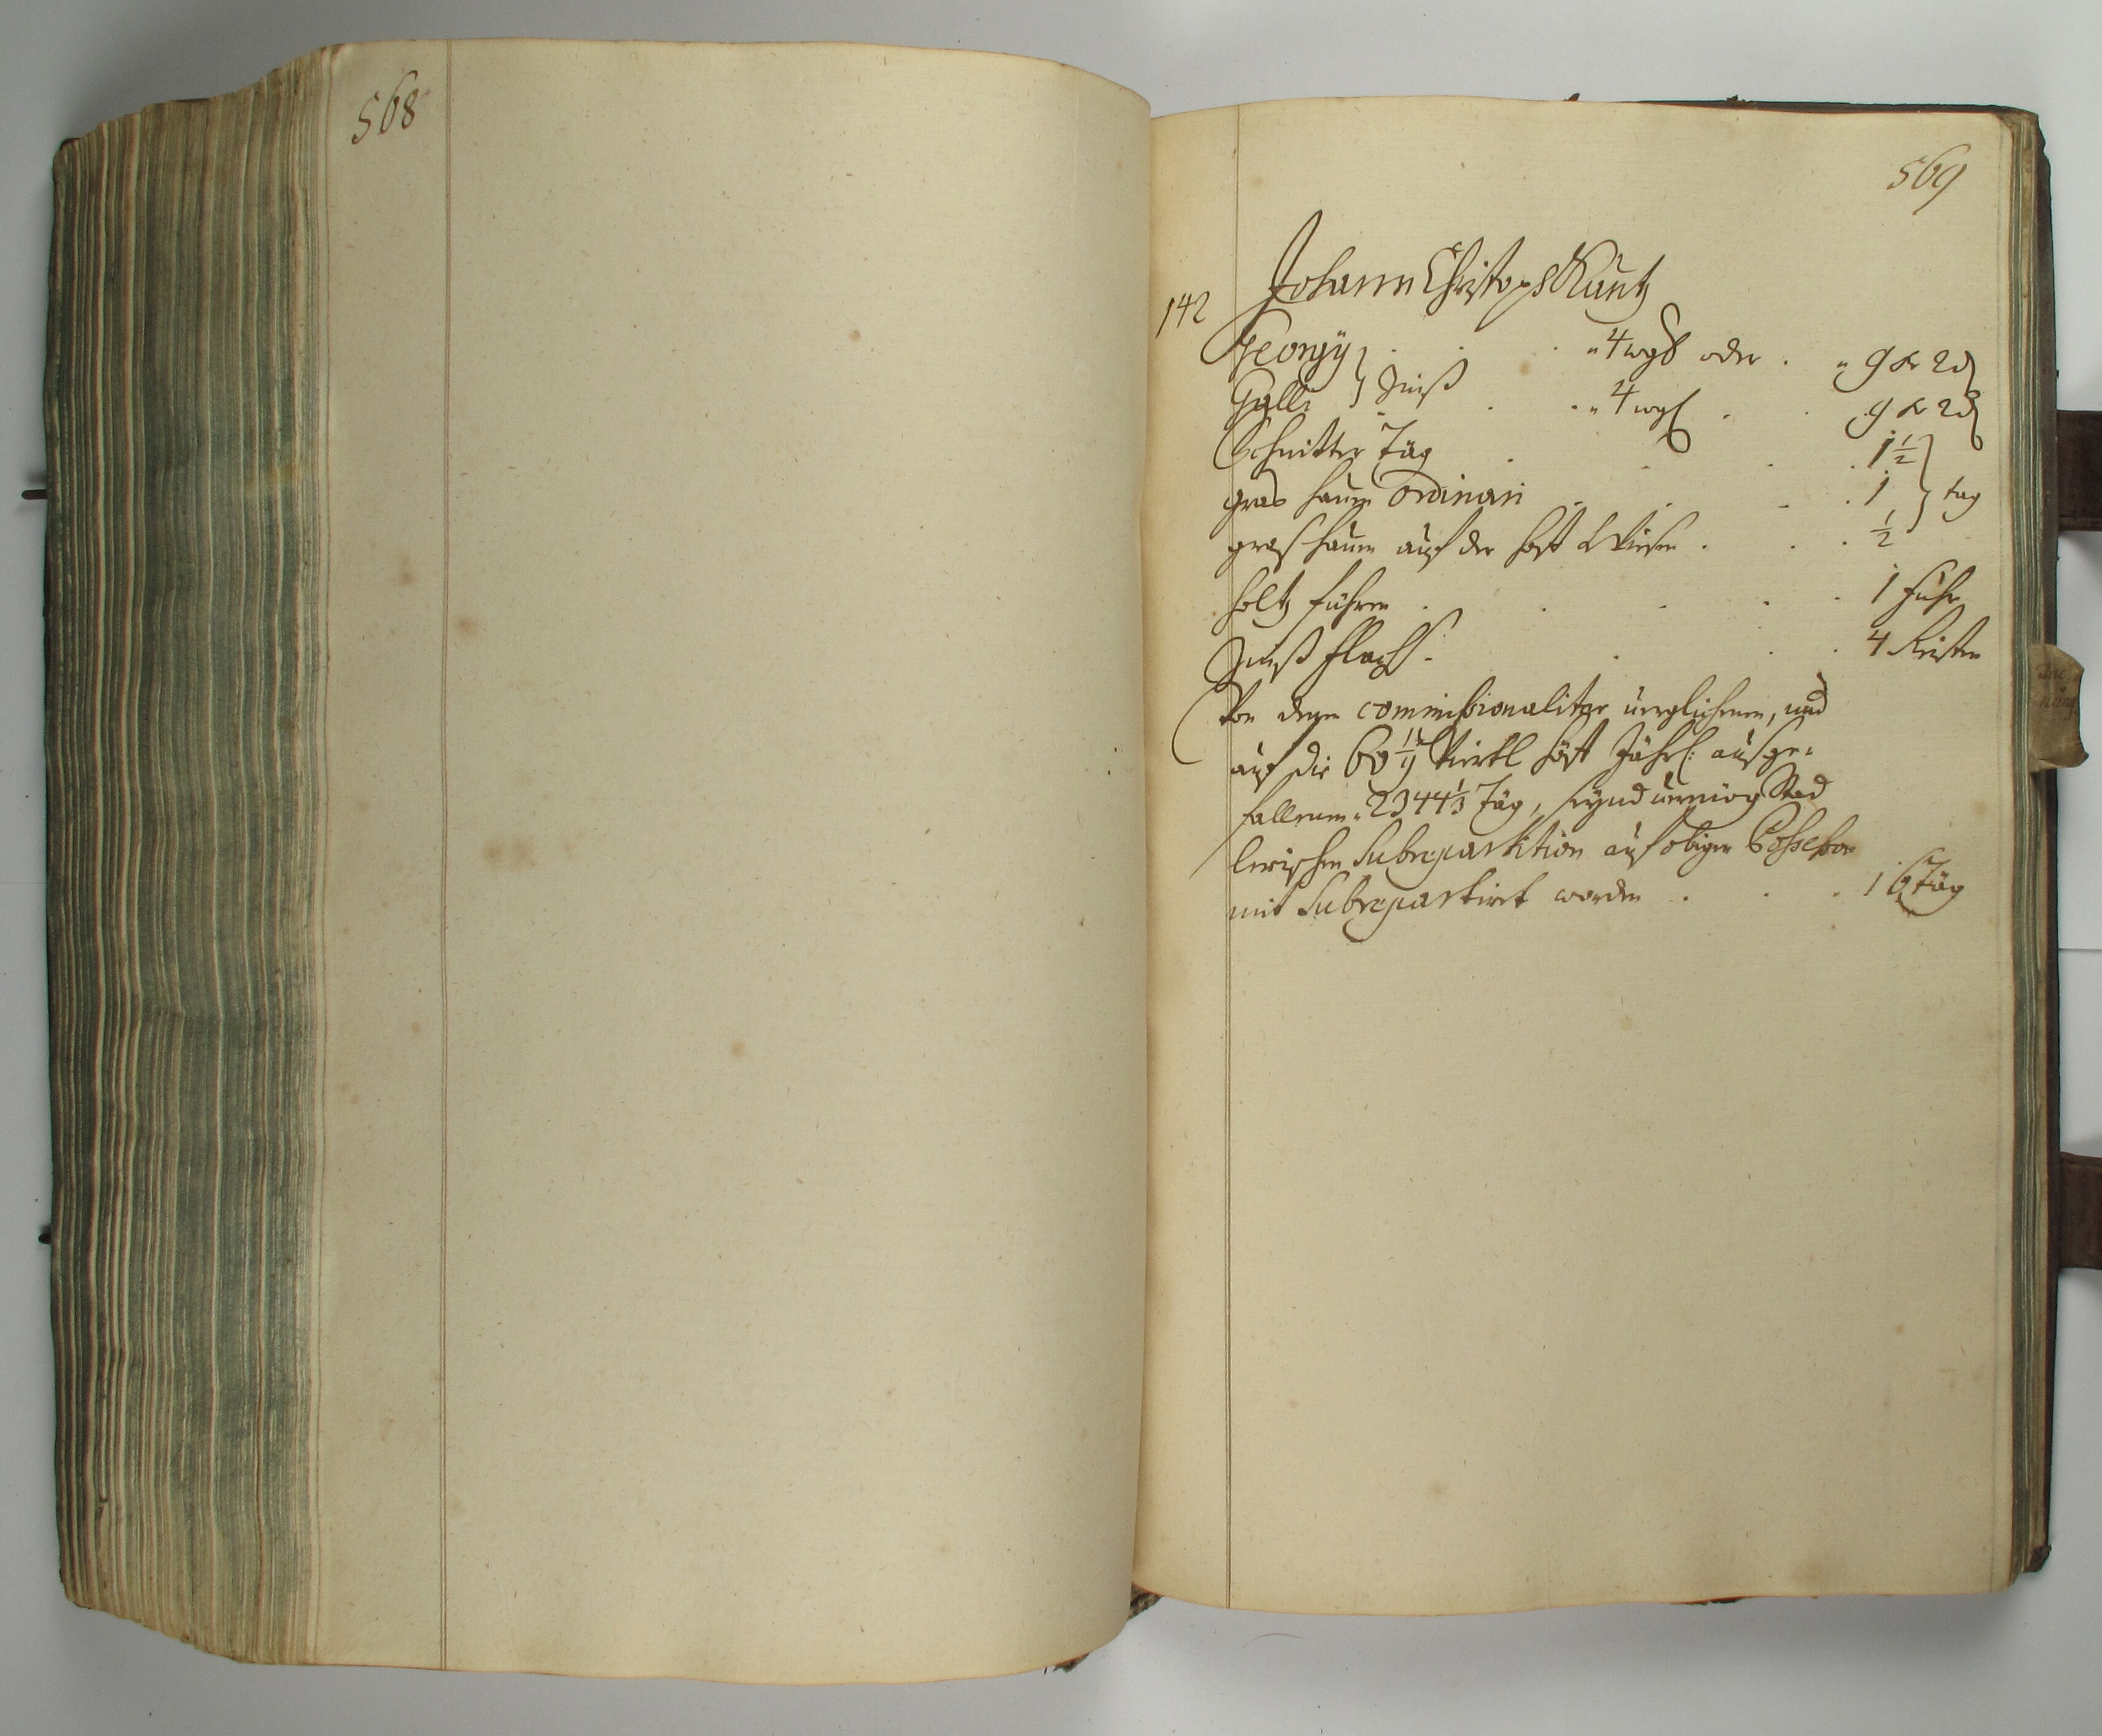 568
569
142
Johann Christoph Kuntz
Georgy . . . " 4 wgl oder . " 9 Kr 2 d
Galli } Zinß . . " 4 wgl . . 9 Kr 2 d
Schnitter Täg . . . . 1 1/2
gras hauen Ordinari . . . . 1 } tag
gras hauen auf der Wiesen . . . 1/2
holtz führen . . . . . 1 Fuhr
Zinß Flachs . . . . 4 Reisten
Von denen commissionaliter verglichenen, und
auf die Viertl Jährl: ausge-
fallenen 2344 1/3 Täg, seynd vermög Stad
lerischen Subrepartition auf obigen Possessor
mit Subrepartirt worden . . . 16 Täg